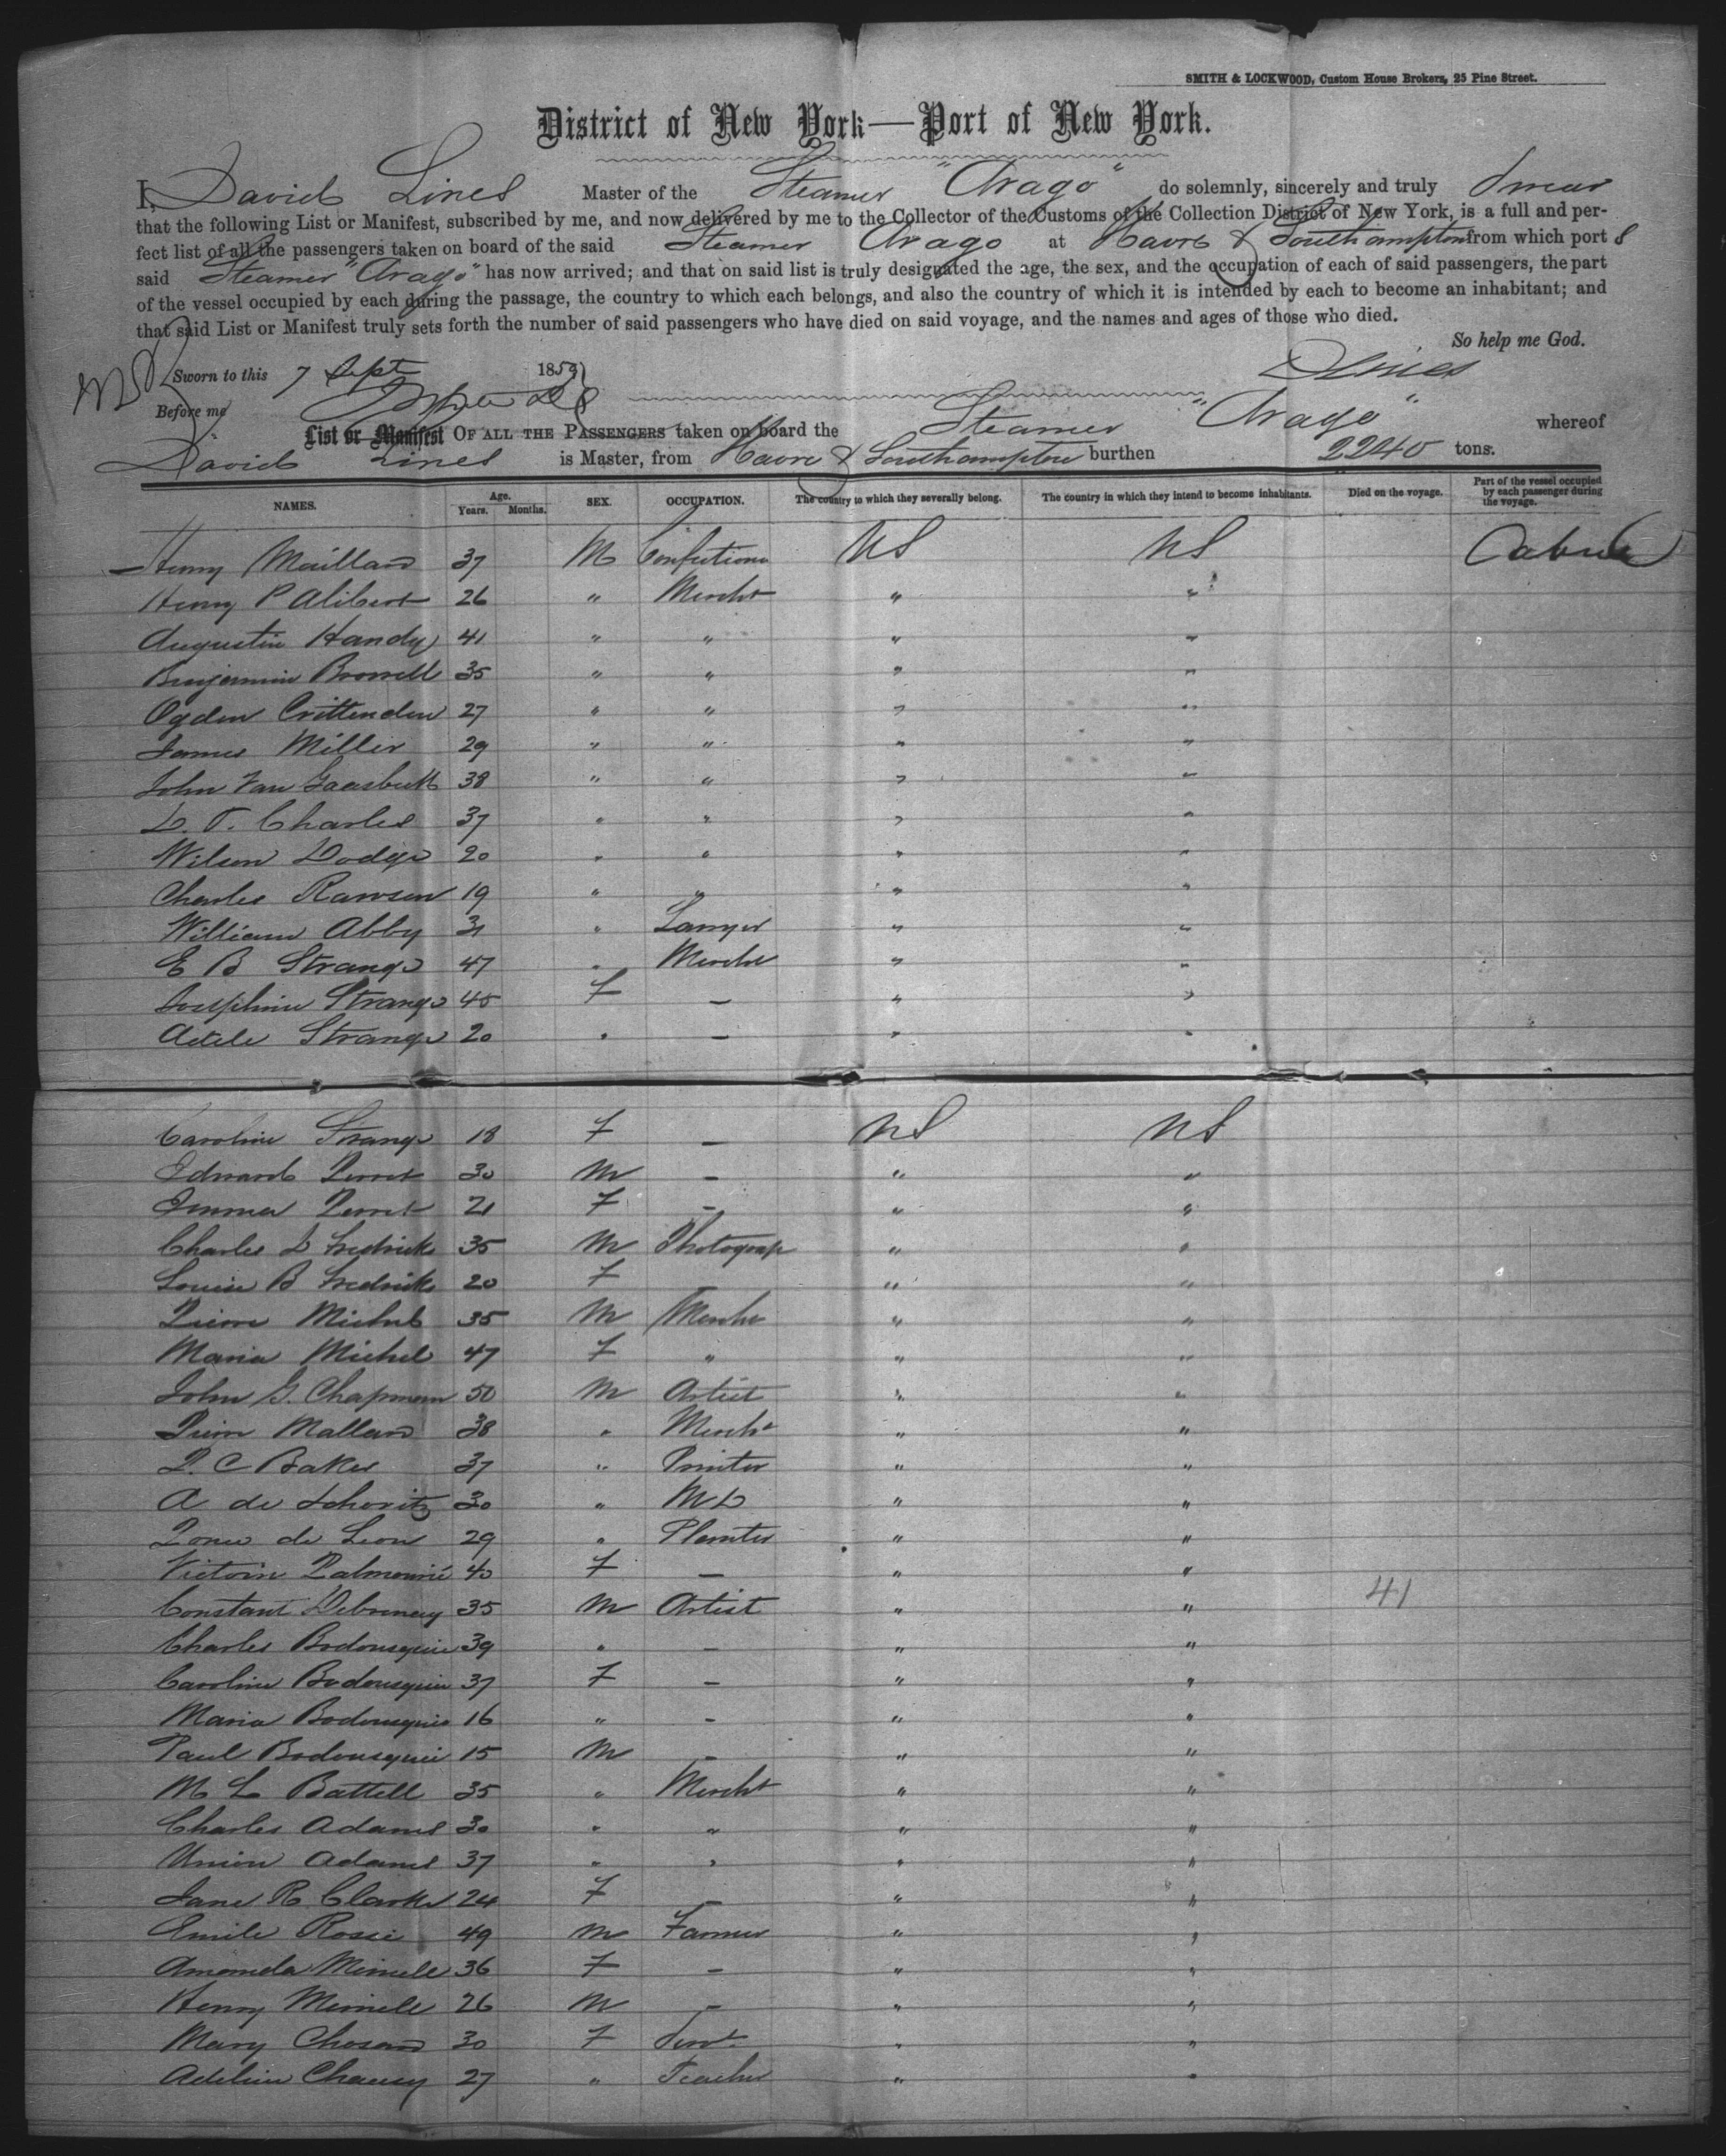 SMITH & LOCKWOOD, Custom House Brokers, 25 Pine Street.
District of New York—Port of New York.
I, David Lines Master of the Steamer "Arago" do solemnly, sincerely and truly Swear
that the following List or Manifest, subscribed by me, and now delivered by me to the Collector of the Customs of the Collection District of New York, is a full and per-
fect list of all the passengers taken on board of the said Steamer Arago at Havre & Southampton from which port s
said Steamer "Arago" has now arrived; and that on said list is truly designated the age, the sex, and the occupation of each of said passengers, the part
of the vessel occupied by each during the passage, the country to which each belongs, and also the country of which it is intended by each to become an inhabitant; and
that said List or Manifest truly sets forth the number of said passengers who have died on said voyage, and the names and ages of those who died.
So help me God.
Sworn to this 7 Sept 1859 D Lines
Before me
List or Manifest OF ALL THE PASSENGERS taken on board the Steamer "Arago" whereof
David Lines is Master, from Havre & Southampton burthen 2240 tons.
NAMES. Age. Years. Months. SEX. OCCUPATION. The country to which they severally belong. The country in which they intend to become inhabitants. Died on the voyage. Part of the vessel occupied by each passenger during the voyage.
Henry Maillard 37 M Confectioner US US Cabin
Henry P Alibert 26 " Mercht " "
Augustin Handy 41 " " " "
Benjamin Brownell 35 " " " "
Ogden Crittenden 27 " " " "
James Miller 29 " " " "
John Van Gaasbeek 38 " " " "
D. T. Charles 37 " " " "
Wilson Dodge 20 " " " "
Charles Rawson 19 " " " "
William Abby 31 " Lawyer " "
E B Strange 47 " Mercht " "
Josephine Strange 45 F — " "
Adele Strange 20 " — " "
Caroline Strange 18 F — US US
Edward Perret 30 M — " "
Emma Perret 21 F — " "
Charles D Fredricks 35 M Photograp " "
Louise B Fredricks 20 F — " "
Pierre Michel 35 M Mercht " "
Maria Michel 47 F " " "
John G. Chapman 50 M Artist " "
Pierre Mallard 38 " Mercht " "
P. C Baker 37 " Printer " "
A de 30 " M D " "
Ponce de Leon 29 " Planter " "
Victoire 40 F — " "
Constant 35 M Artist " " 41
Charles Bodousquie 39 " — " "
Caroline Bodousquie 37 F — " "
Maria Bodousquie 16 " — " "
Paul Bodousquie 15 M — " "
M L Battell 35 " Mercht " "
Charles Adams 30 " " " "
Union Adams 37 " " " "
Jane R Clarke 24 F — " "
Emile Rossi 49 M Farmer " "
Amanda 36 F — " "
Henry 26 M — " "
Mary 30 F Servt " "
Adeline Chausy 27 " Teacher " "